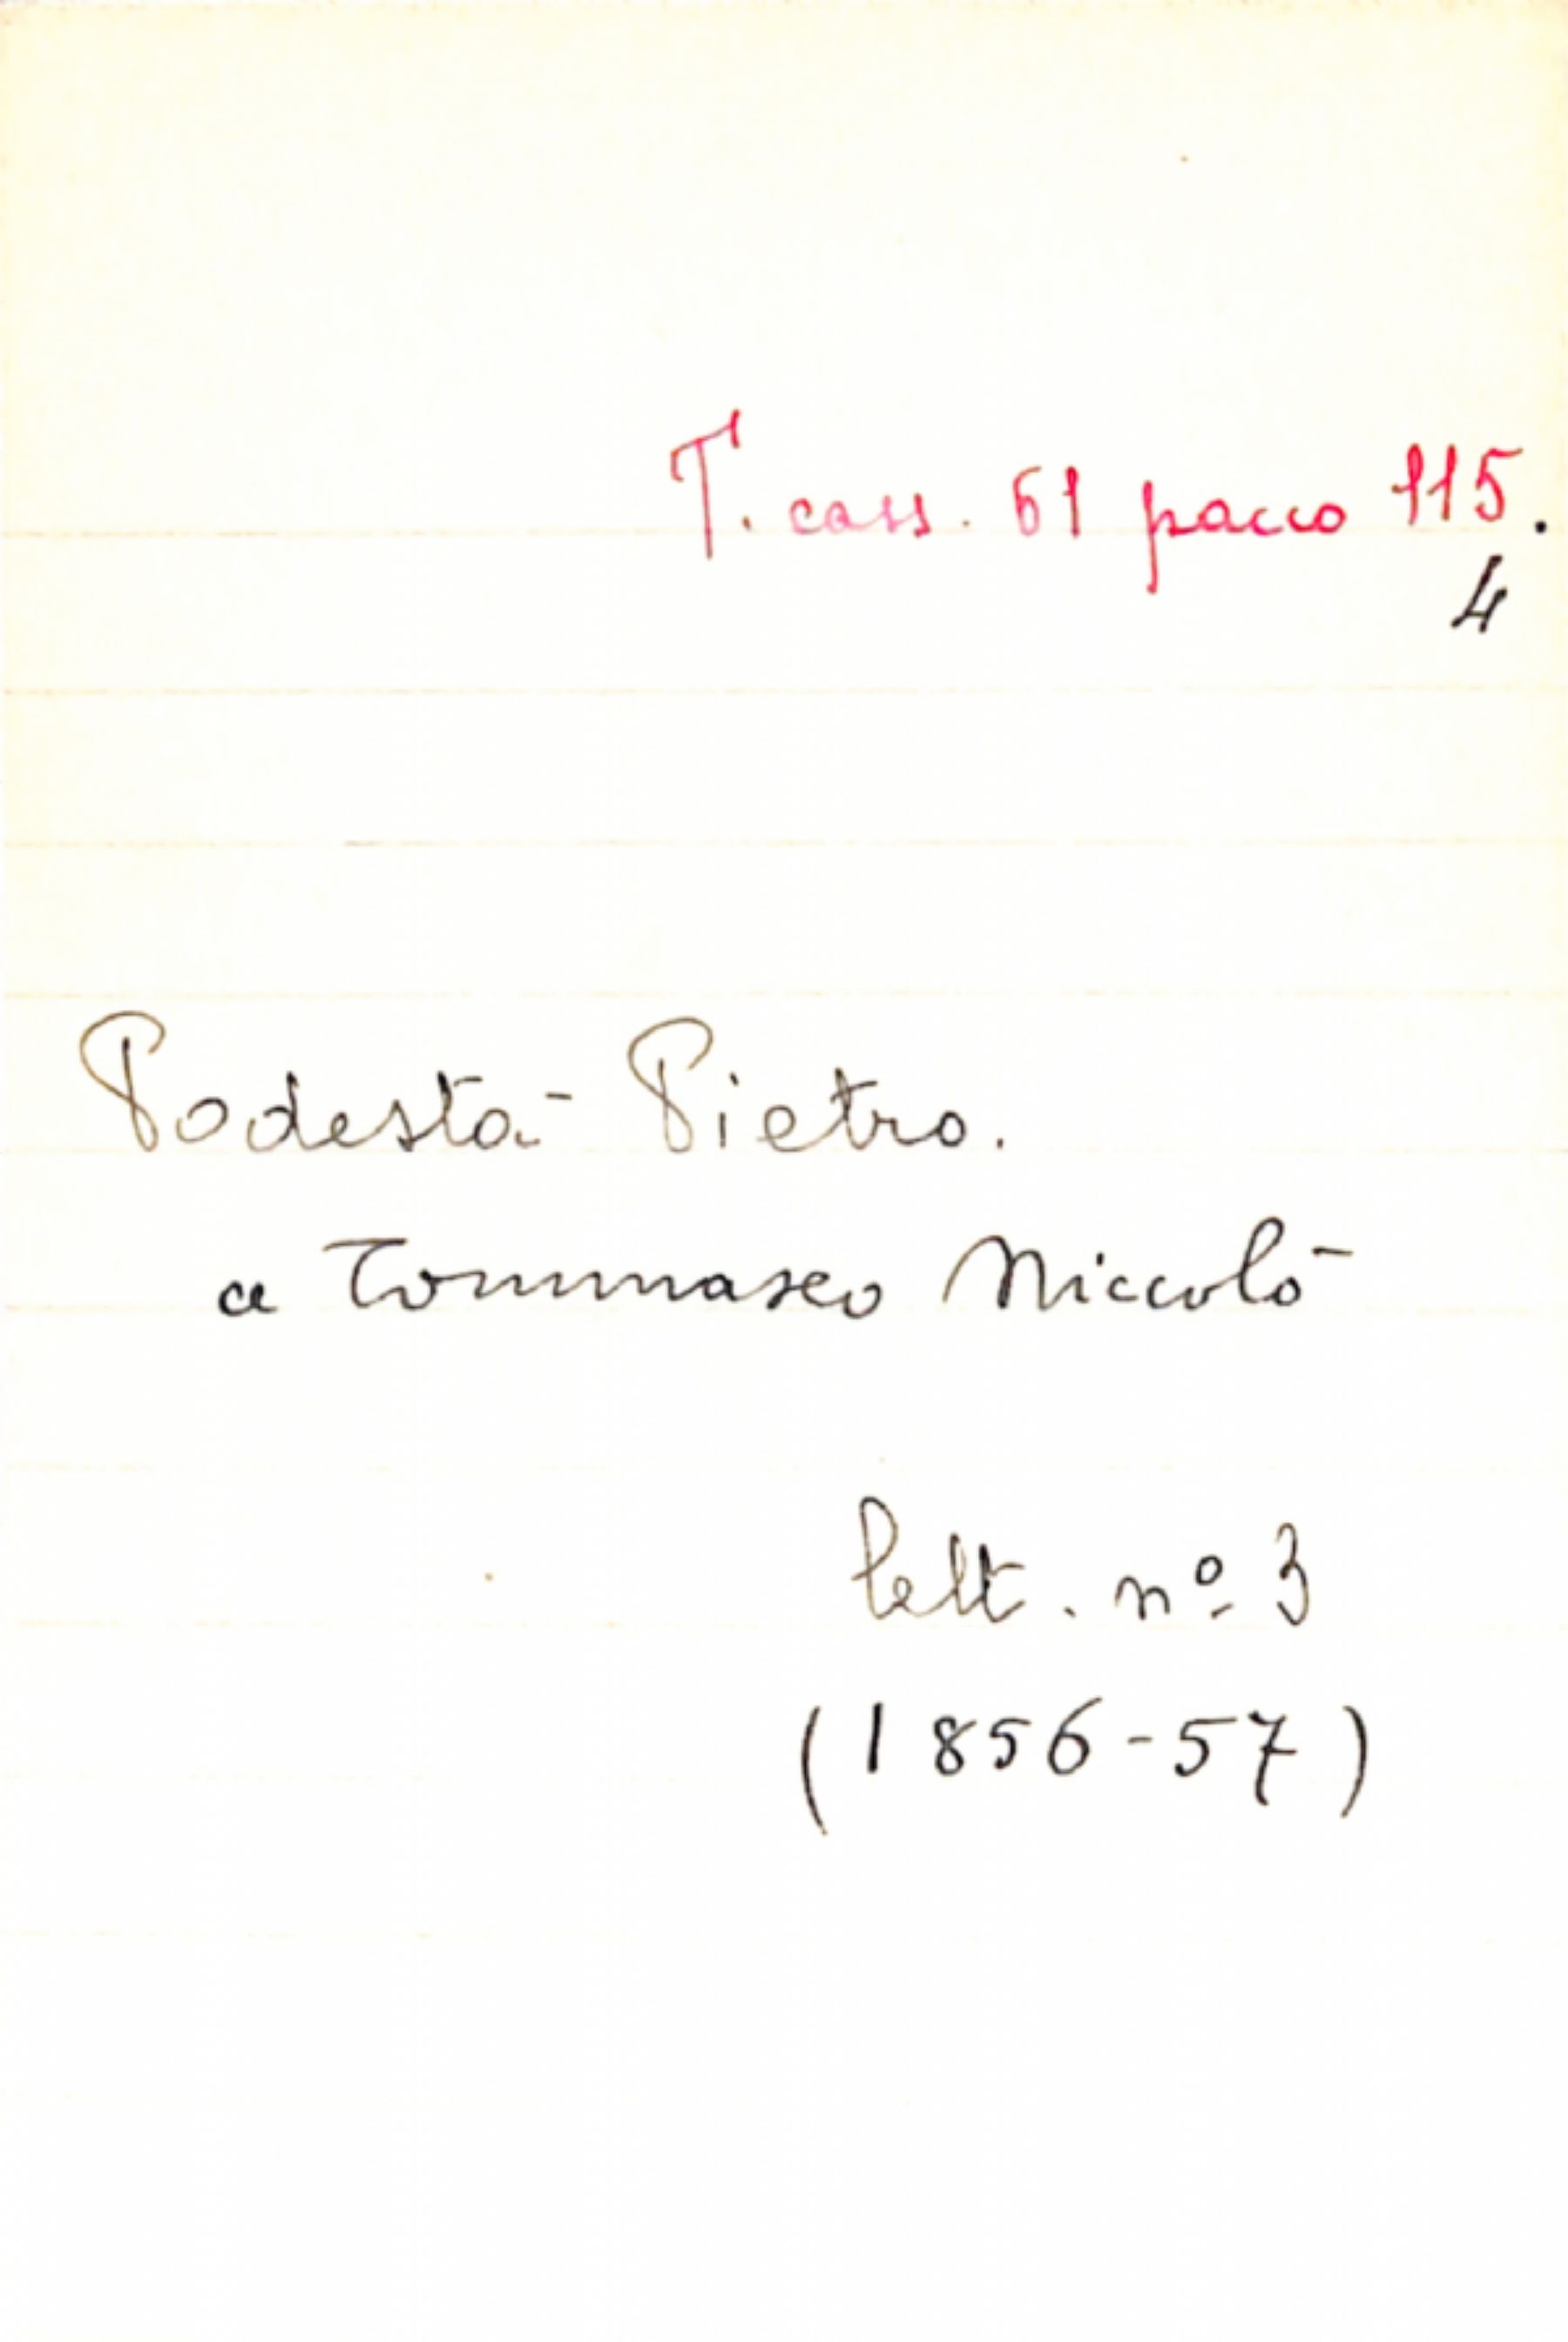 T. cass. 61 pacco 115.
4
Podestà Pietro.
a Tommaseo Niccolò
lett. nº 3
(1856-57)